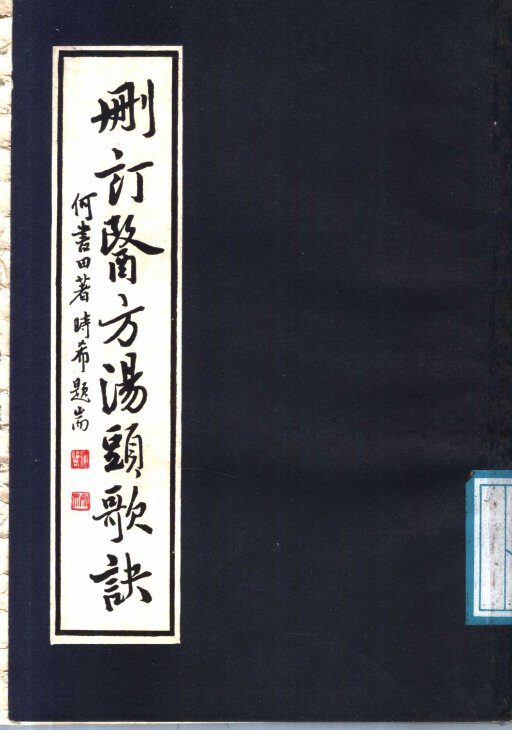 刪訂醫方湯頭歌訣
何書田著 時希題耑